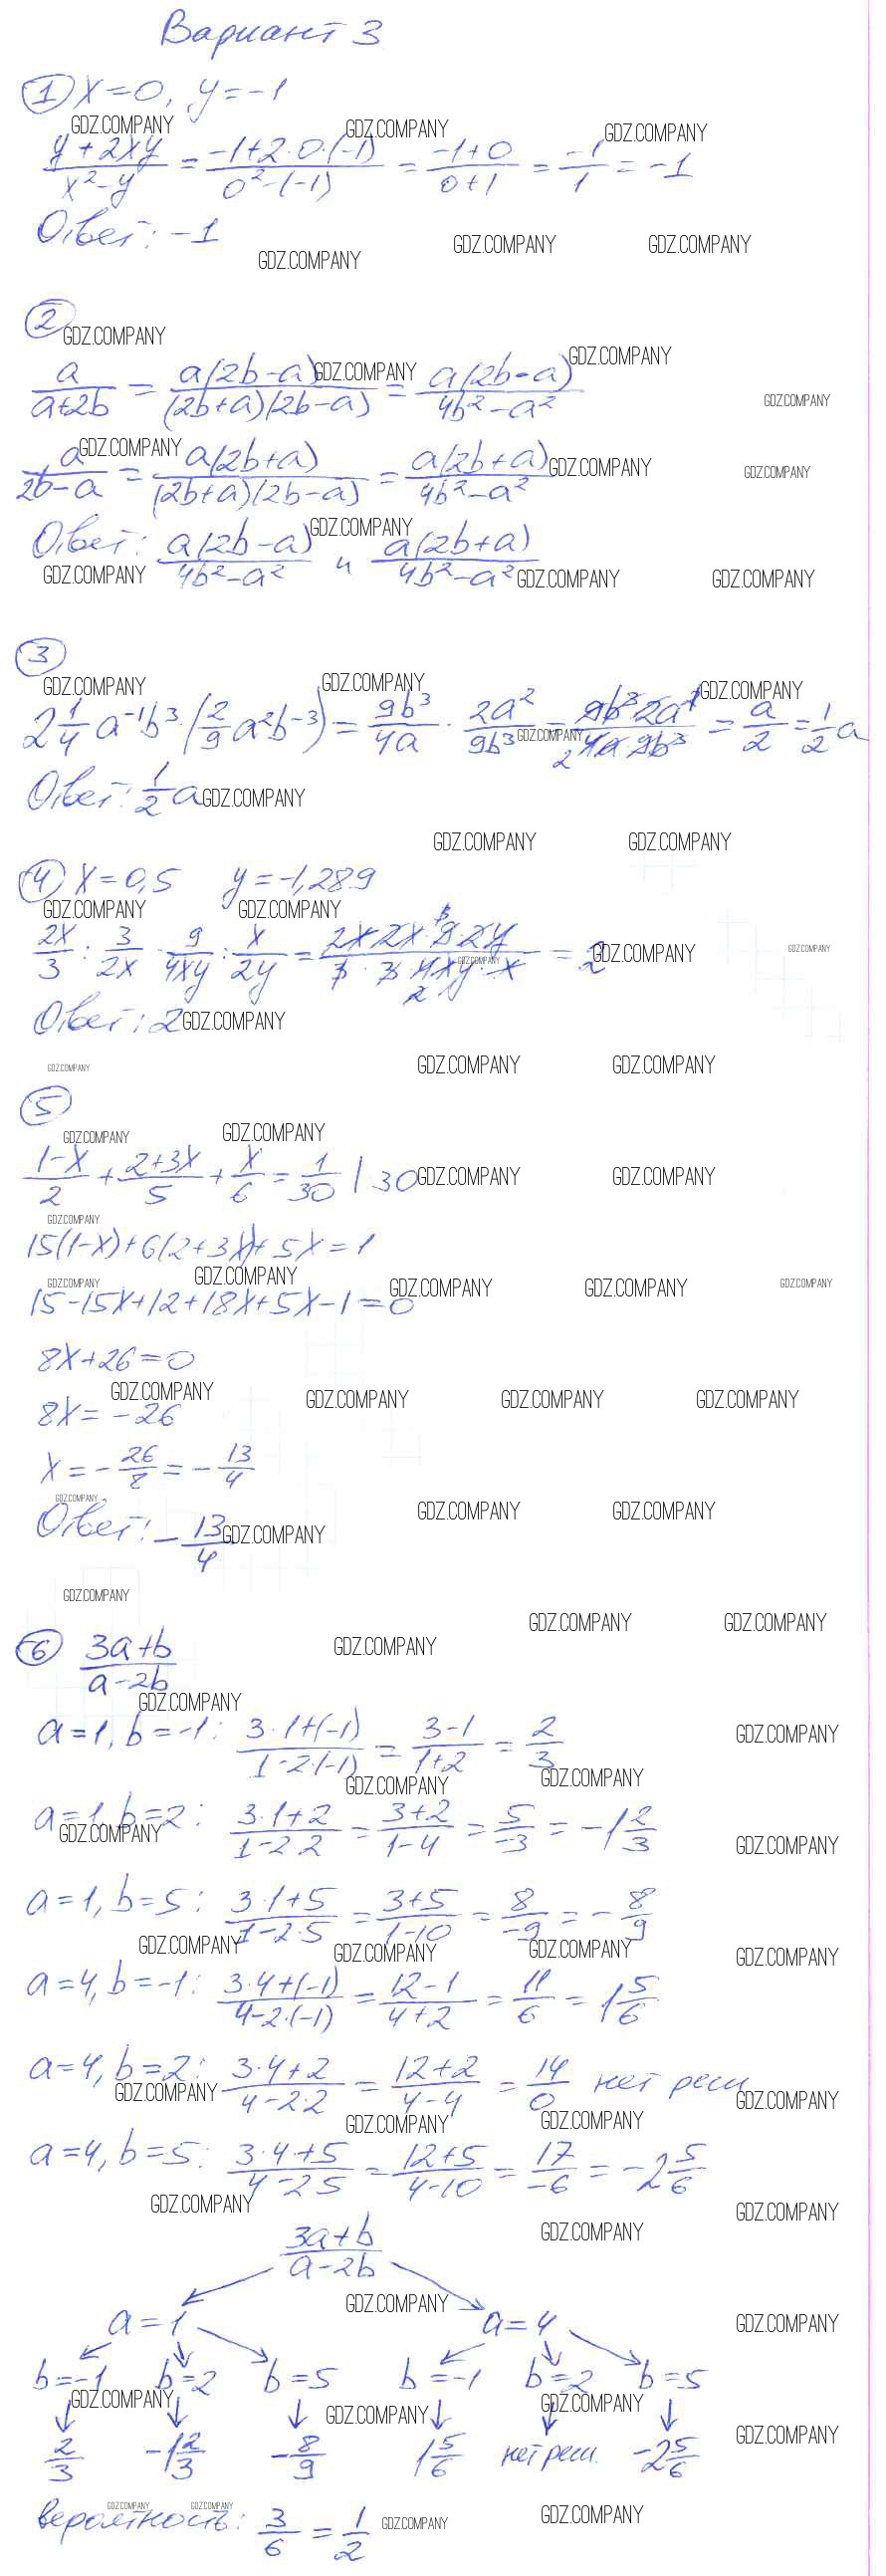 Вариант 3
① x=0, y=-1
(y+2xy)/(x²-y) = (-1+2·0·(-1))/(0²-(-1)) = (-1+0)/(0+1) = -1/1 = -1
Ответ: -1
②
a/(a+2b) = a(2b-a)/((2b+a)(2b-a)) = a(2b-a)/(4b²-a²)
a/(2b-a) = a(2b+a)/((2b+a)(2b-a)) = a(2b+a)/(4b²-a²)
Ответ: a(2b-a)/(4b²-a²) и a(2b+a)/(4b²-a²)
③
2 1/4 a⁻¹b³·(2/9 a²b⁻³) = 9b³/4a · 2a²/9b³ = 9b³·2a²/(4a·9b³) = a/2 = 1/2 a
Ответ: 1/2 a
④ x=0,5 y=-1,289
2x/3 : 3/2x · 9/4xy : x/2y = 2x·2x·9·2y/(3·3·4xy·x) = 2
Ответ: 2
⑤
(1-x)/2 + (2+3x)/5 + x/6 = 1/30 |·30
15(1-x)+6(2+3x)+5x=1
15-15x+12+18x+5x-1=0
8x+26=0
8x=-26
x=-26/8=-13/4
Ответ: -13/4
⑥ (3a+b)/(a-2b)
a=1, b=-1: (3·1+(-1))/(1-2·(-1)) = (3-1)/(1+2) = 2/3
a=1, b=2: (3·1+2)/(1-2·2) = (3+2)/(1-4) = 5/-3 = -1 2/3
a=1, b=5: (3·1+5)/(1-2·5) = (3+5)/(1-10) = 8/-9 = -8/9
a=4, b=-1: (3·4+(-1))/(4-2·(-1)) = (12-1)/(4+2) = 11/6 = 1 5/6
a=4, b=2: (3·4+2)/(4-2·2) = (12+2)/(4-4) = 14/0 нет реш
a=4, b=5: (3·4+5)/(4-2·5) = (12+5)/(4-10) = 17/-6 = -2 5/6
(3a+b)/(a-2b)
a=1 a=4
b=-1 b=2 b=5 b=-1 b=2 b=5
2/3 -1 2/3 -8/9 1 5/6 нет реш. -2 5/6
вероятность: 3/6 = 1/2
GDZ.COMPANY